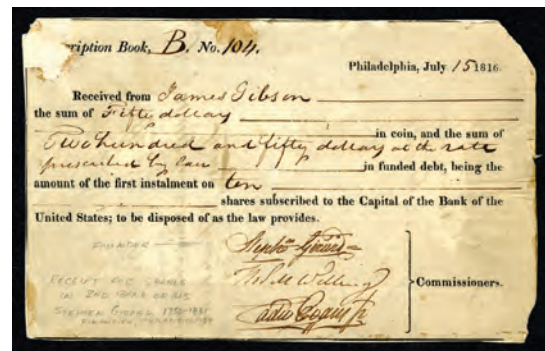 ription Book, B. No. 104.
Philadelphia, July 15 1816.
Received from James Gibson
the sum of Fifty dollars
in coin, and the sum of
Two hundred and fifty dollars at the rate
prescribed by law in funded debt, being the
amount of the first instalment on ten
shares subscribed to the Capital of the Bank of the
United States; to be disposed of as the law provides.
FOUNDER
Stephen Girard
RECEIPT FOR SHARES
IN 2ND BANK OF US
Tho. M. Willing
Commissioners.
STEPHEN GIRARD 1750-1831
Cadw Evans Jr